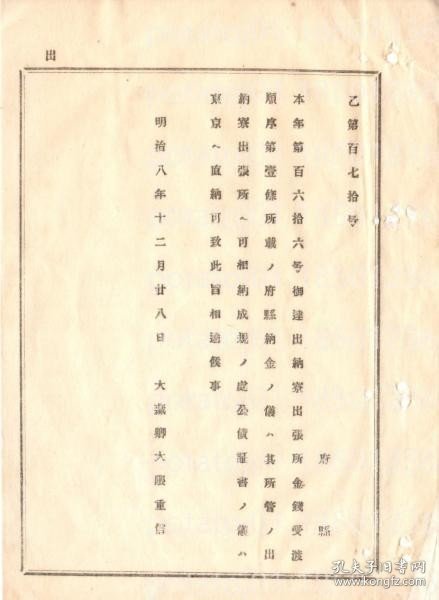 出
乙第百七拾号
府縣
本年第百六拾六号御達出納寮出張所金銭受渡
順序第壹條所載ノ府縣納金ノ儀ハ其所管ノ出
納寮出張所ヘ可相納成規ノ處公債証書ノ儀ハ
東京ヘ直納可致此旨相達候事
明治八年十二月廿八日 大藏卿大隈重信
孔夫子旧书网